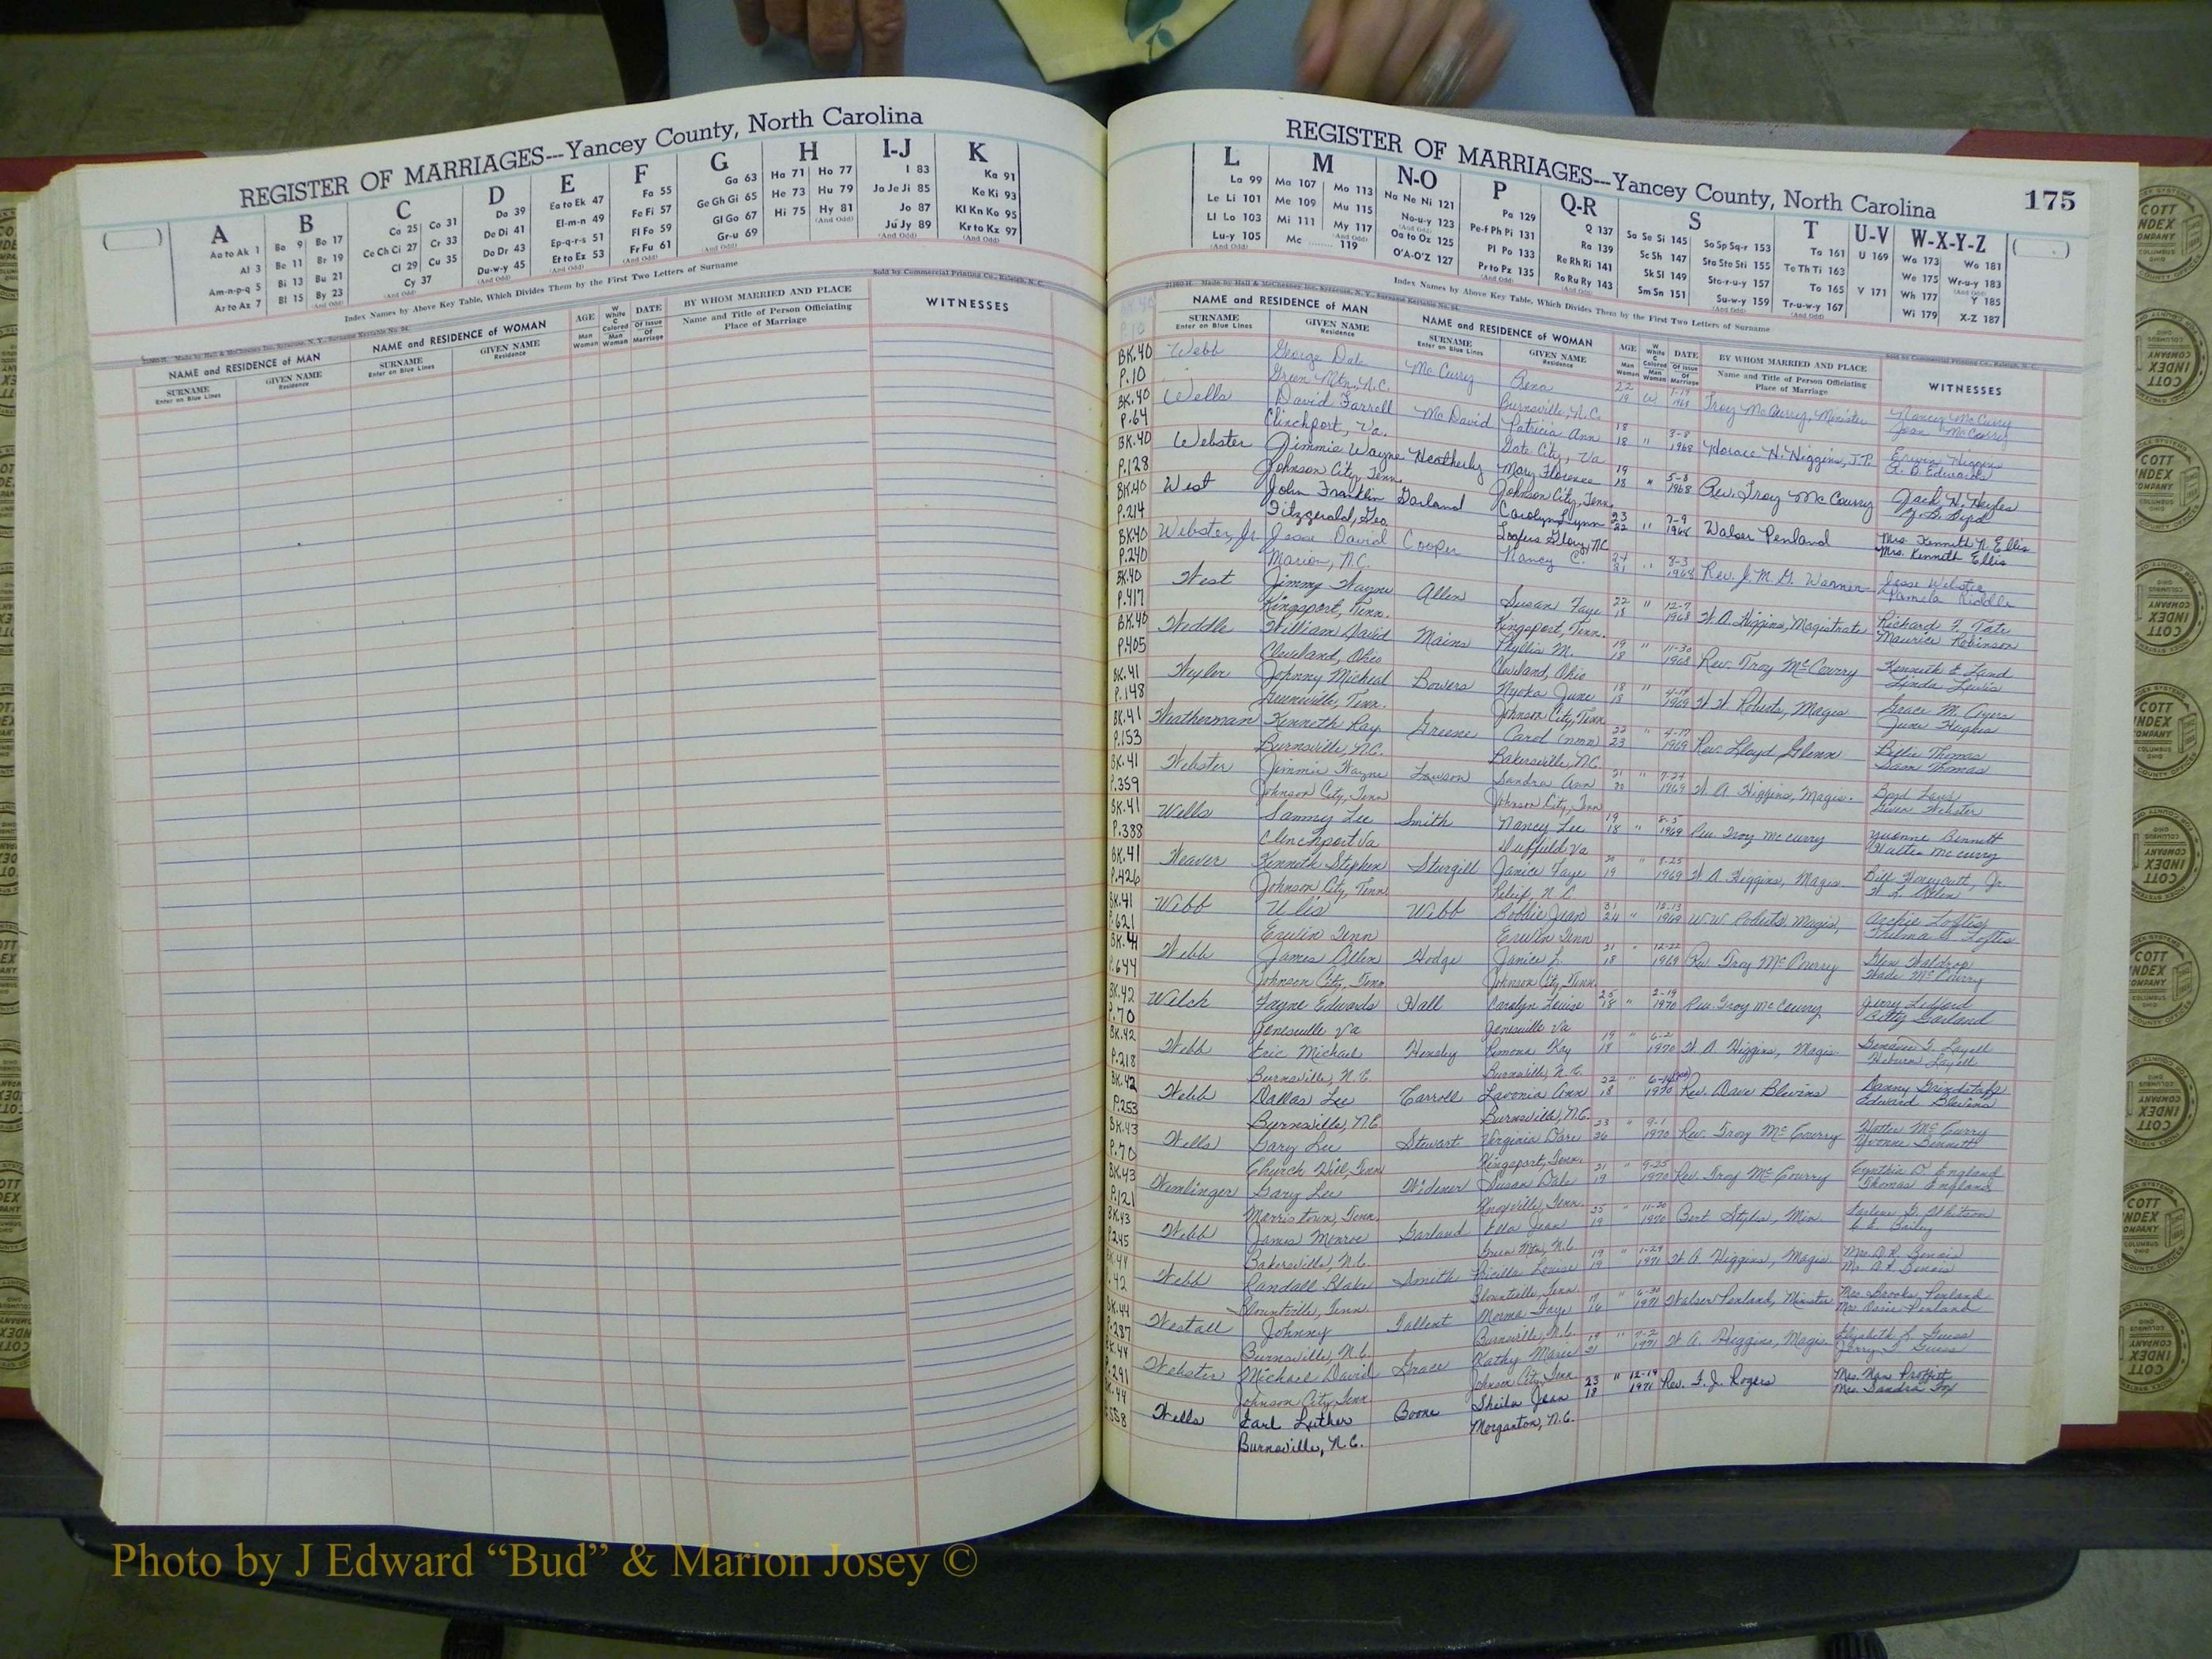 REGISTER OF MARRIAGES---Yancey County, North Carolina
A B C D E F G H I-J K
Aa to Ak 1 Ba 9 Bo 17 Ca 25 Co 31 Da 39 Ea to Ek 47 Fa 55 Ga 63 Ha 71 Ho 77 I 83 Ka 91
Al 3 Be 11 Br 19 Ce Ch Ci 27 Cr 33 De Di 41 El-m-n 49 Fe Fi 57 Ge Gh Gi 65 He 73 Hu 79 Ja Je Ji 85 Ke Ki 93
Am-n-p-q 5 Bi 13 Bu 21 Cl 29 Cu 35 Do Dr 43 Ep-q-r-s 51 Fl Fo 59 Gl Go 67 Hi 75 Hy 81 Jo 87 Kl Kn Ko 95
Ar to Az 7 Bl 15 By 23 Cy 37 Du-w-y 45 Et to Ez 53 Fr Fu 61 Gr-u 69 Ju Jy 89 Kr to Kz 97
Index Names by Above Key Table, Which Divides Them by the First Two Letters of Surname
Sold by Commercial Printing Co., Raleigh, N. C.
NAME and RESIDENCE of MAN NAME and RESIDENCE of WOMAN AGE DATE BY WHOM MARRIED AND PLACE WITNESSES
SURNAME GIVEN NAME SURNAME GIVEN NAME Name and Title of Person Officiating
Enter on Blue Lines Residence Enter on Blue Lines Residence Place of Marriage
REGISTER OF MARRIAGES---Yancey County, North Carolina 175
L M N-O P Q-R S T U-V W-X-Y-Z
La 99 Ma 107 Mo 113 Na Ne Ni 121 Pa 129 Q 137 Sa Se Si 145 So Sp Sq-r 153 Ta 161 U 169 Wa 173 Wo 181
Le Li 101 Me 109 Mu 115 No-u-y 123 Pe-f Ph Pi 131 Ra 139 Sc Sh 147 Sta Ste Sti 155 Te Th Ti 163 We 175 Wr-u-y 183
Ll Lo 103 Mi 111 My 117 Oa to Oz 125 Pl Po 133 Re Rh Ri 141 Sk Sl 149 Sto-r-u-y 157 To 165 V 171 Wh 177 Y 185
Lu-y 105 Mc 119 O'A-O'Z 127 Pr to Pz 135 Ro Ru Ry 143 Sm Sn 151 Su-w-y 159 Tr-u-w-y 167 Wi 179 X-Z 187
Index Names by Above Key Table, Which Divides Them by the First Two Letters of Surname
NAME and RESIDENCE of MAN NAME and RESIDENCE of WOMAN AGE DATE BY WHOM MARRIED AND PLACE WITNESSES
SURNAME GIVEN NAME SURNAME GIVEN NAME Name and Title of Person Officiating
Enter on Blue Lines Residence Enter on Blue Lines Residence Place of Marriage
BK.40 Webb George Dale McCurry Rena 22 19 W 1968 Troy McCurry, Minister Nancy McCurry
P.10 Green Mtn, N.C. Burnsville, N.C. Jean McCurry
BK.40 Wells David Farrell McDavid Patricia Ann 18 18 " 3-8 1968 Horace H. Higgins, J.P. Erwin Higgins
P.64 Clinchport, Va. Gate City, Va
BK.40 Webster Jimmie Wayne Heatherly Mary Florence 19 18 " 5-8 1968 Rev. Troy McCourry
P.128 Johnson City, Tenn. Johnson City, Tenn.
BK.40 West John Franklin Garland Carolyn Lynn 23 22 " 7-9 1968 Walser Penland Mrs. Kenneth N. Ellis
P.214 Fitzgerald, Geo. Loafers Glory, NC Mrs. Kenneth Ellis
BK.40 Webster, Jr Jesse David Cooper Nancy C. 27 21 " 8-3 1968 Rev. J. M. G. Warner Jesse Webster
P.240 Marion, N.C. Pamela Riddle
BK.40 West Jimmy Wayne Allen Susan Faye 22 18 " 12-7 1968 W.A. Higgins, Magistrate Richard F. Tate
P.417 Kingsport, Tenn. Kingsport, Tenn. Maurice Robinson
BK.40 Weddle William David Mains Phyllis M. 19 18 " 11-30 1968 Rev. Troy McCourry
P.405 Cleveland, Ohio Cleveland, Ohio Linda Lewis
BK.41 Johnny Micheal Bowers Nyoka June 18 18 " 1969 Grace M. Ayers
P.148 Greeneville, Tenn. Johnson City, Tenn June Hughes
BK.41 Weatherman Kenneth Ray Greene Carol (nmn) 22 23 " 4-17 1969 Rev. Lloyd Glenn Billie Thomas
P.153 Burnsville, N.C. Bakersville, N.C. Sam Thomas
BK.41 Webster Jimmie Wayne Lawson Sandra Ann 21 20 " 7-27 1969 W. A. Higgins, Magis.
P.359 Johnson City, Tenn Johnson City, Tenn
BK.41 Wells Sammy Lee Smith Nancy Lee 19 18 " 8-5 1969 Rev Troy McCurry Yvonne Bennett
P.388 Clinchport Va Duffield Va
BK.41 Weaver Kenneth Stephen Sturgill Janice Faye 20 19 " 8-25 1969 W. A. Higgins, Magis. Bill Honeycutt, Jr.
P.426 Johnson City, Tenn Relief, N.C.
BK.41 Webb Ulis Webb Bobbie Jean 31 24 " 12-13 1969 W.W. Roberts, Magis, Archie Loftis
P.621 Erwin Tenn Erwin Tenn
BK.41 Webb James Allen Hodge Janice L. 21 18 " 12-22 1969 Rev Troy McCourry Glen Waldrop
P.644 Johnson City, Tenn Johnson City, Tenn. Wade McCourry
BK.42 Welch Wayne Edwards Hall Carolyn Louise 25 18 " 2-19 1970 Rev. Troy McCourry Jerry Ledford
P.70 Jonesville Va Jonesville Va Betty Garland
BK.42 Webb Eric Michael Hensley Ramona Kay 19 18 " 6-2 1970 W. A. Higgins, Magis
P.218 Burnsville, N.C. Burnsville, N.C.
BK.42 Webb Dallas Lee Carroll Lavonia Ann 22 18 " 1970 Rev. Dave Blevins Danny Grindstaff
P.253 Burnsville, N.C. Burnsville, N.C. Edward Blevins
BK.43 Wells Gary Lee Stewart Virginia Dare 23 26 " 9-1 1970 Rev. Troy McCourry Hattie McCurry
P.70 Church Hill, Tenn Kingsport, Tenn. Yvonne Bennett
BK.43 Wemlinger Gary Lee Widener Susan Dale 21 19 " 9-25 1970 Rev. Troy McCourry Cynthia D. England
P.121 Morristown, Tenn. Knoxville, Tenn. Thomas England
BK.43 Webb James Monroe Garland Ella Jean 25 19 " 11-20 1970 Bert Styles, Min.
P.245 Bakersville, N.C. Green Mtn, N.C. Bailey
BK.44 Webb Randall Blake Smith Louise 19 19 " 1-29 1971 W. A. Higgins, Magis
P.42 Blountville, Tenn Blountville, Tenn.
BK.44 Westall Johnny Tallent Norma Faye 17 16 " 6-30 1971 Walser Penland, Minister Mrs Brooks Penland
P.287 Burnsville, N.C. Burnsville, N.C.
BK.44 Webster Michael David Grace Kathy Marie 19 21 " 7-2 1971 W. A. Higgins, Magis. Elizabeth L. Guess
P.291 Johnson City, Tenn Johnson City, Tenn. Jerry Guess
BK.44 Wells Earl Luther Boone Sheila Jean 23 18 " 12-19 1971 Rev. F. J. Rogers Mrs. Nan Proffitt
P.558 Burnsville, N.C. Morganton, N.C. Mrs. Sandra Fox
COTT
INDEX
COMPANY
COLUMBUS
OHIO
Photo by J Edward “Bud” & Marion Josey ©